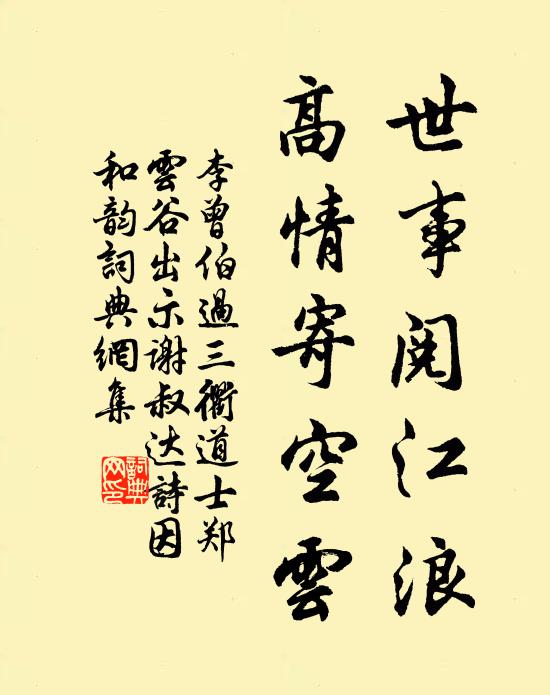 世事閱江浪
高情寄空雲
李曾伯過三衢道士郑
雲谷出示谢叔达詩因
和韵詞典網集
詞典网印